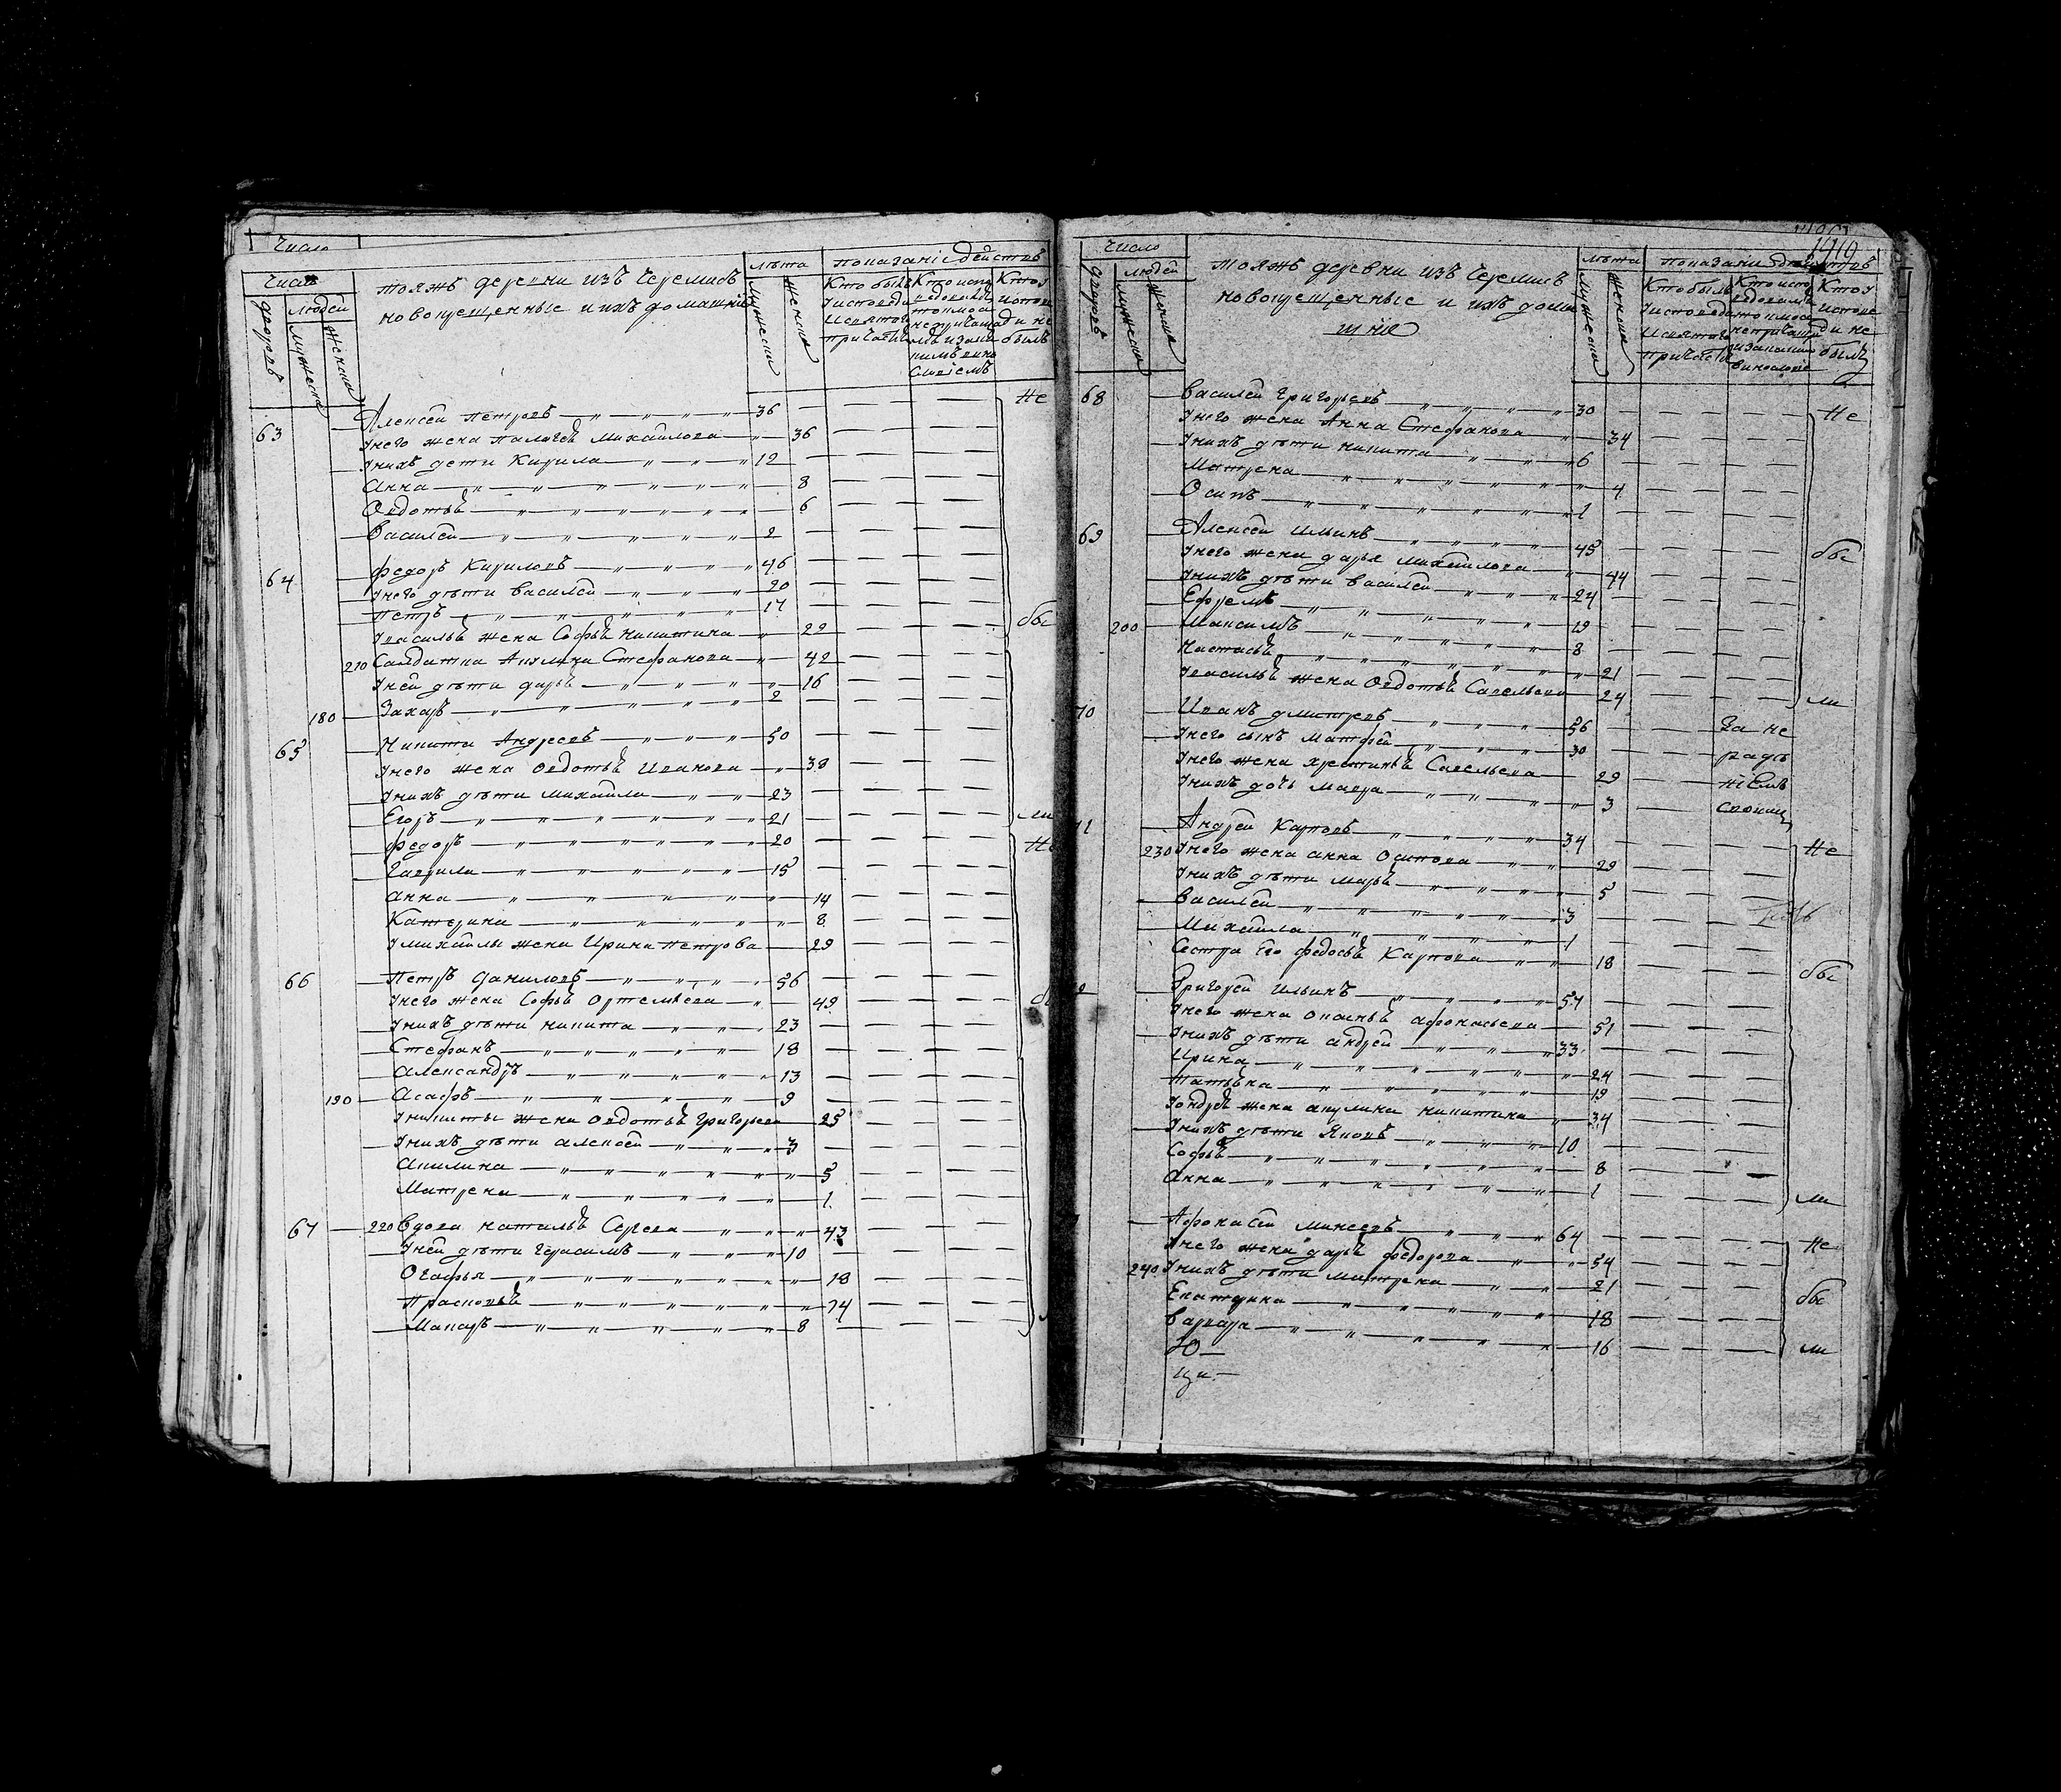 Число
Число
дворовъ
людей
мужеска
женска
тояжъ деревни изъ черемисъ
новокрещенные и ихъ домашнія
лѣта
мужеска
женска
показаніе действъ
Кто былъ
Кто
63 Алексѣй Петровъ 36
Не
Унего жена Палагеѣ Михайлова 36
Унихъ дети Кирила 12
Анна 8
Овдотьѣ 6
Василей 2
64 Федоръ Кириловъ 46
Унего дѣти Василей 20
Петръ 17
Увасильѣ жена Софьѣ Никитина 29
бы
210 Салдатка Акулина Стефанова 42
Уней дѣти Дарьѣ 16
180 Захаръ 2
65 Никита Андреевъ 50
Унего жена Овдотьѣ Иванова 38
Унихъ дѣти Михайла 23
Егоръ 21
ли
Федоръ 20
Не
Гаврила 15
Анна 14
Катерина 8
Умихайлы жена Ирина Петрова 29
66 Петръ Даниловъ 56
Унего жена Софьѣ Ортемьева 49
Унихъ дѣти Никита 23
Стефанъ 18
Александръ 13
190 Асафъ 9
Уникиты жена Овдотьѣ Григорьева 25
Унихъ дѣти Алексѣй 3
Акилина 5
Матрена 1
67 220 Вдова Натальѣ Сергева 43
Уней дѣти Герасимъ 10
Огафья 18
Прасковьѣ 14
Макаръ 8
Число
дворовъ
людей
мужеска
женска
тояжъ деревни изъ черемисъ
новокрещенные и ихъ дома
шнія
лѣта
мужеска
женска
показани
Кто былъ
68 Василей Григорьевъ 30
Не
Унего жена Анна Стефанова 34
Унихъ дѣти Никита 6
Матрена 4
Осипъ 1
69 Алексѣй Ильинъ 45
Унего жена Дарья Михайлова 44
бы
Унихъ дѣти Василей 24
Ефремъ 19
200 Максимъ 8
Настасьѣ 21
Увасильѣ жена Овдотьѣ Савельева 24
ли
70 Иванъ Дмитревъ 56
За не
Унего сынъ Матфей 30
радѣ
Унего жена Хрестиньѣ Савельева 29
ніемъ
Унихъ дочь Мавра 3
своимъ
71 Андрей Карповъ 34
Не
230 Унего жена Анна Осипова 29
Унихъ дѣти Марьѣ 5
Василей 3
Михайла 1
Сестра его Федосьѣ Карпова 18
бы
Григорей Ильинъ 57
Унего жена Афонасьева 51
Унихъ дѣти Андрей 33
Ирина 24
Татьѣна 19
жена Акулина Никитина 34
Унихъ дѣти Яковъ 10
Софьѣ 8
Анна 1
ли
Афонасей 64
Не
Унего жена Дарьѣ Федорова 54
240 Унихъ дѣти Матрена 21
Екатерина 18
бы
Варвара 16
ли
Ю